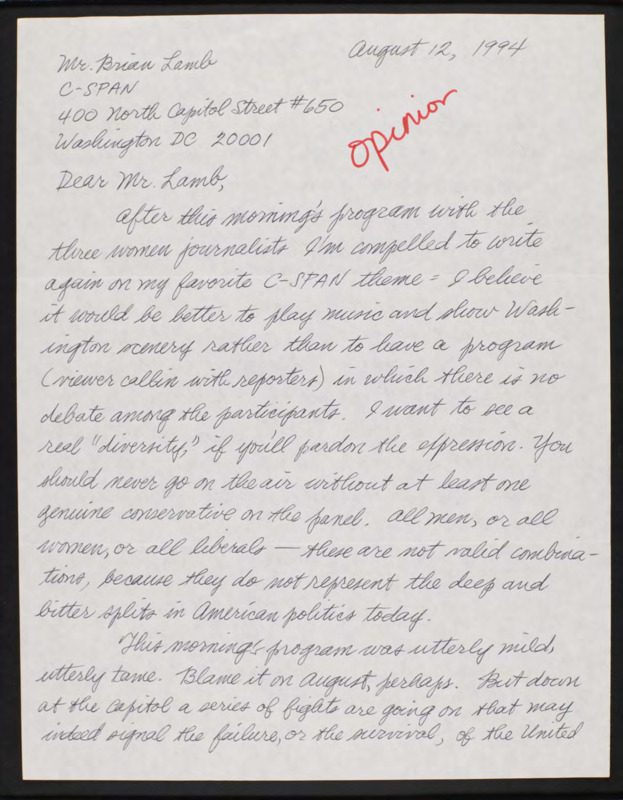 August 12, 1994
Mr. Brian Lamb
C-SPAN
400 North Capitol Street #650
Washington DC 20001
opinion
Dear Mr. Lamb,
After this morning's program with the
three women journalists I'm compelled to write
again on my favorite C-SPAN theme = I believe
it would be better to play music and show Wash-
ington scenery rather than to have a program
(viewer callin with reporters) in which there is no
debate among the participants. I want to see a
real "diversity," if you'll pardon the expression. You
should never go on the air without at least one
genuine conservative on the panel. All men, or all
women, or all liberals — these are not valid combina-
tions, because they do not represent the deep and
bitter splits in American politics today.
This morning's program was utterly mild,
utterly tame. Blame it on August, perhaps. But down
at the Capitol a series of fights are going on that may
indeed signal the failure, or the survival, of the United